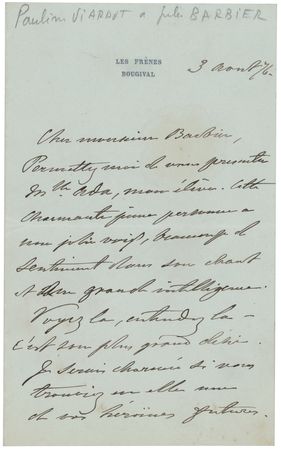 Pauline VIARDOT a Jules BARBIER
LES FRÊNES
BOUGIVAL
3 août 76
Cher monsieur Barbier,
Permettez moi de vous présenter
Mlle Ada, mon élève. Cette
charmante jeune personne a
une jolie voix, beaucoup de
sentiment dans son chant
et une grande intelligence.
Voyez la, entendez la –
c'est son plus grand désir.
Je serais charmée si vous
trouviez en elle une
de vos héroïnes futures.